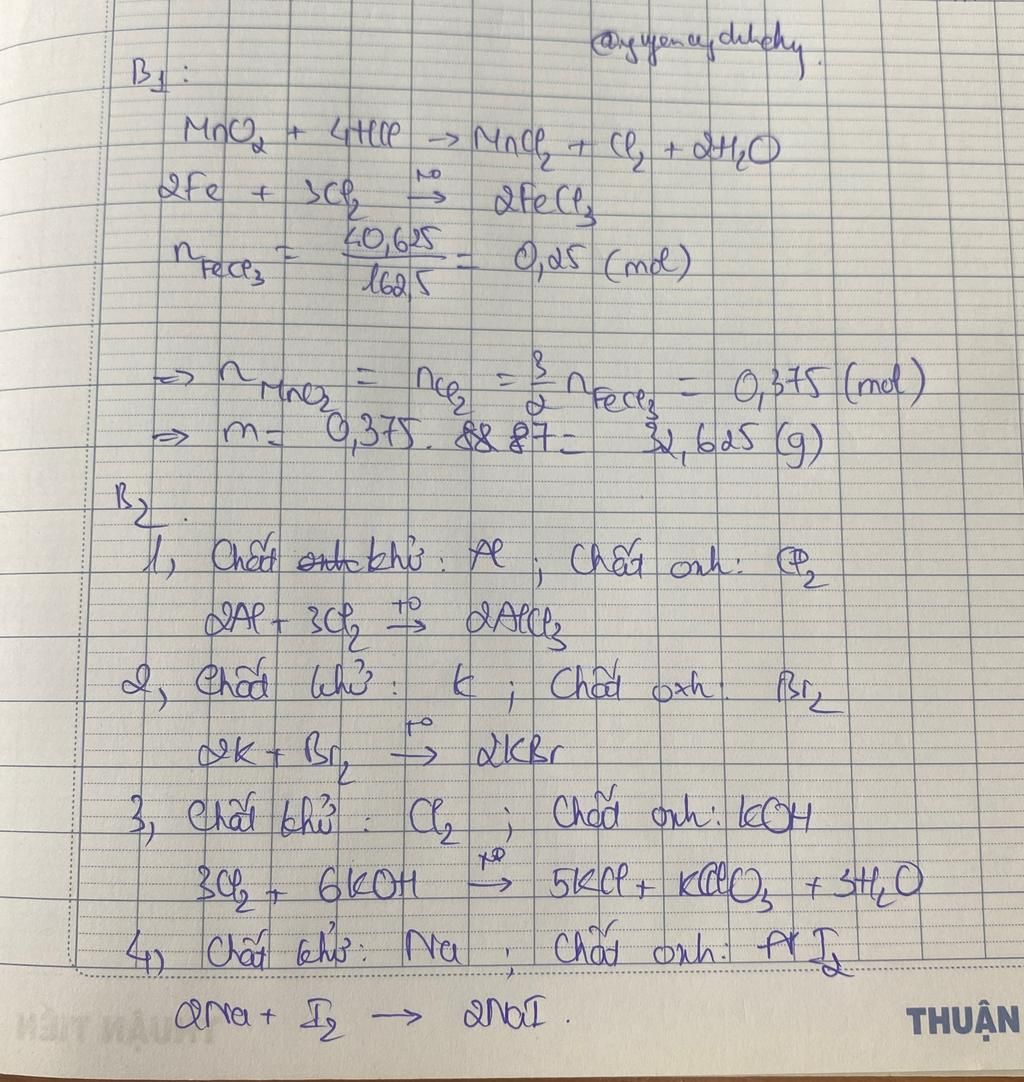 B1:
MnO2 + 4HCl → MnCl2 + Cl2 + 2H2O
2Fe + 3Cl2 →(t°) 2FeCl3
nFeCl3 = 40,625/162,5 = 0,25 (mol)
=> nMnO2 = nCl2 = 3/2 nFeCl3 = 0,375 (mol)
=> m = 0,375. 87 = 32,625 (g)
B2.
1, Chất khử: Al ; Chất oxh: Cl2
2Al + 3Cl2 →(t°) 2AlCl3
2, Chất khử: K ; Chất oxh: Br2
2K + Br2 →(t°) 2KBr
3, Chất khử: Cl2 ; Chất oxh: KOH
3Cl2 + 6KOH →(t°) 5KCl + KClO3 + 3H2O
4, Chất khử: Na ; Chất oxh: I2
2Na + I2 → 2NaI.
THUẬN